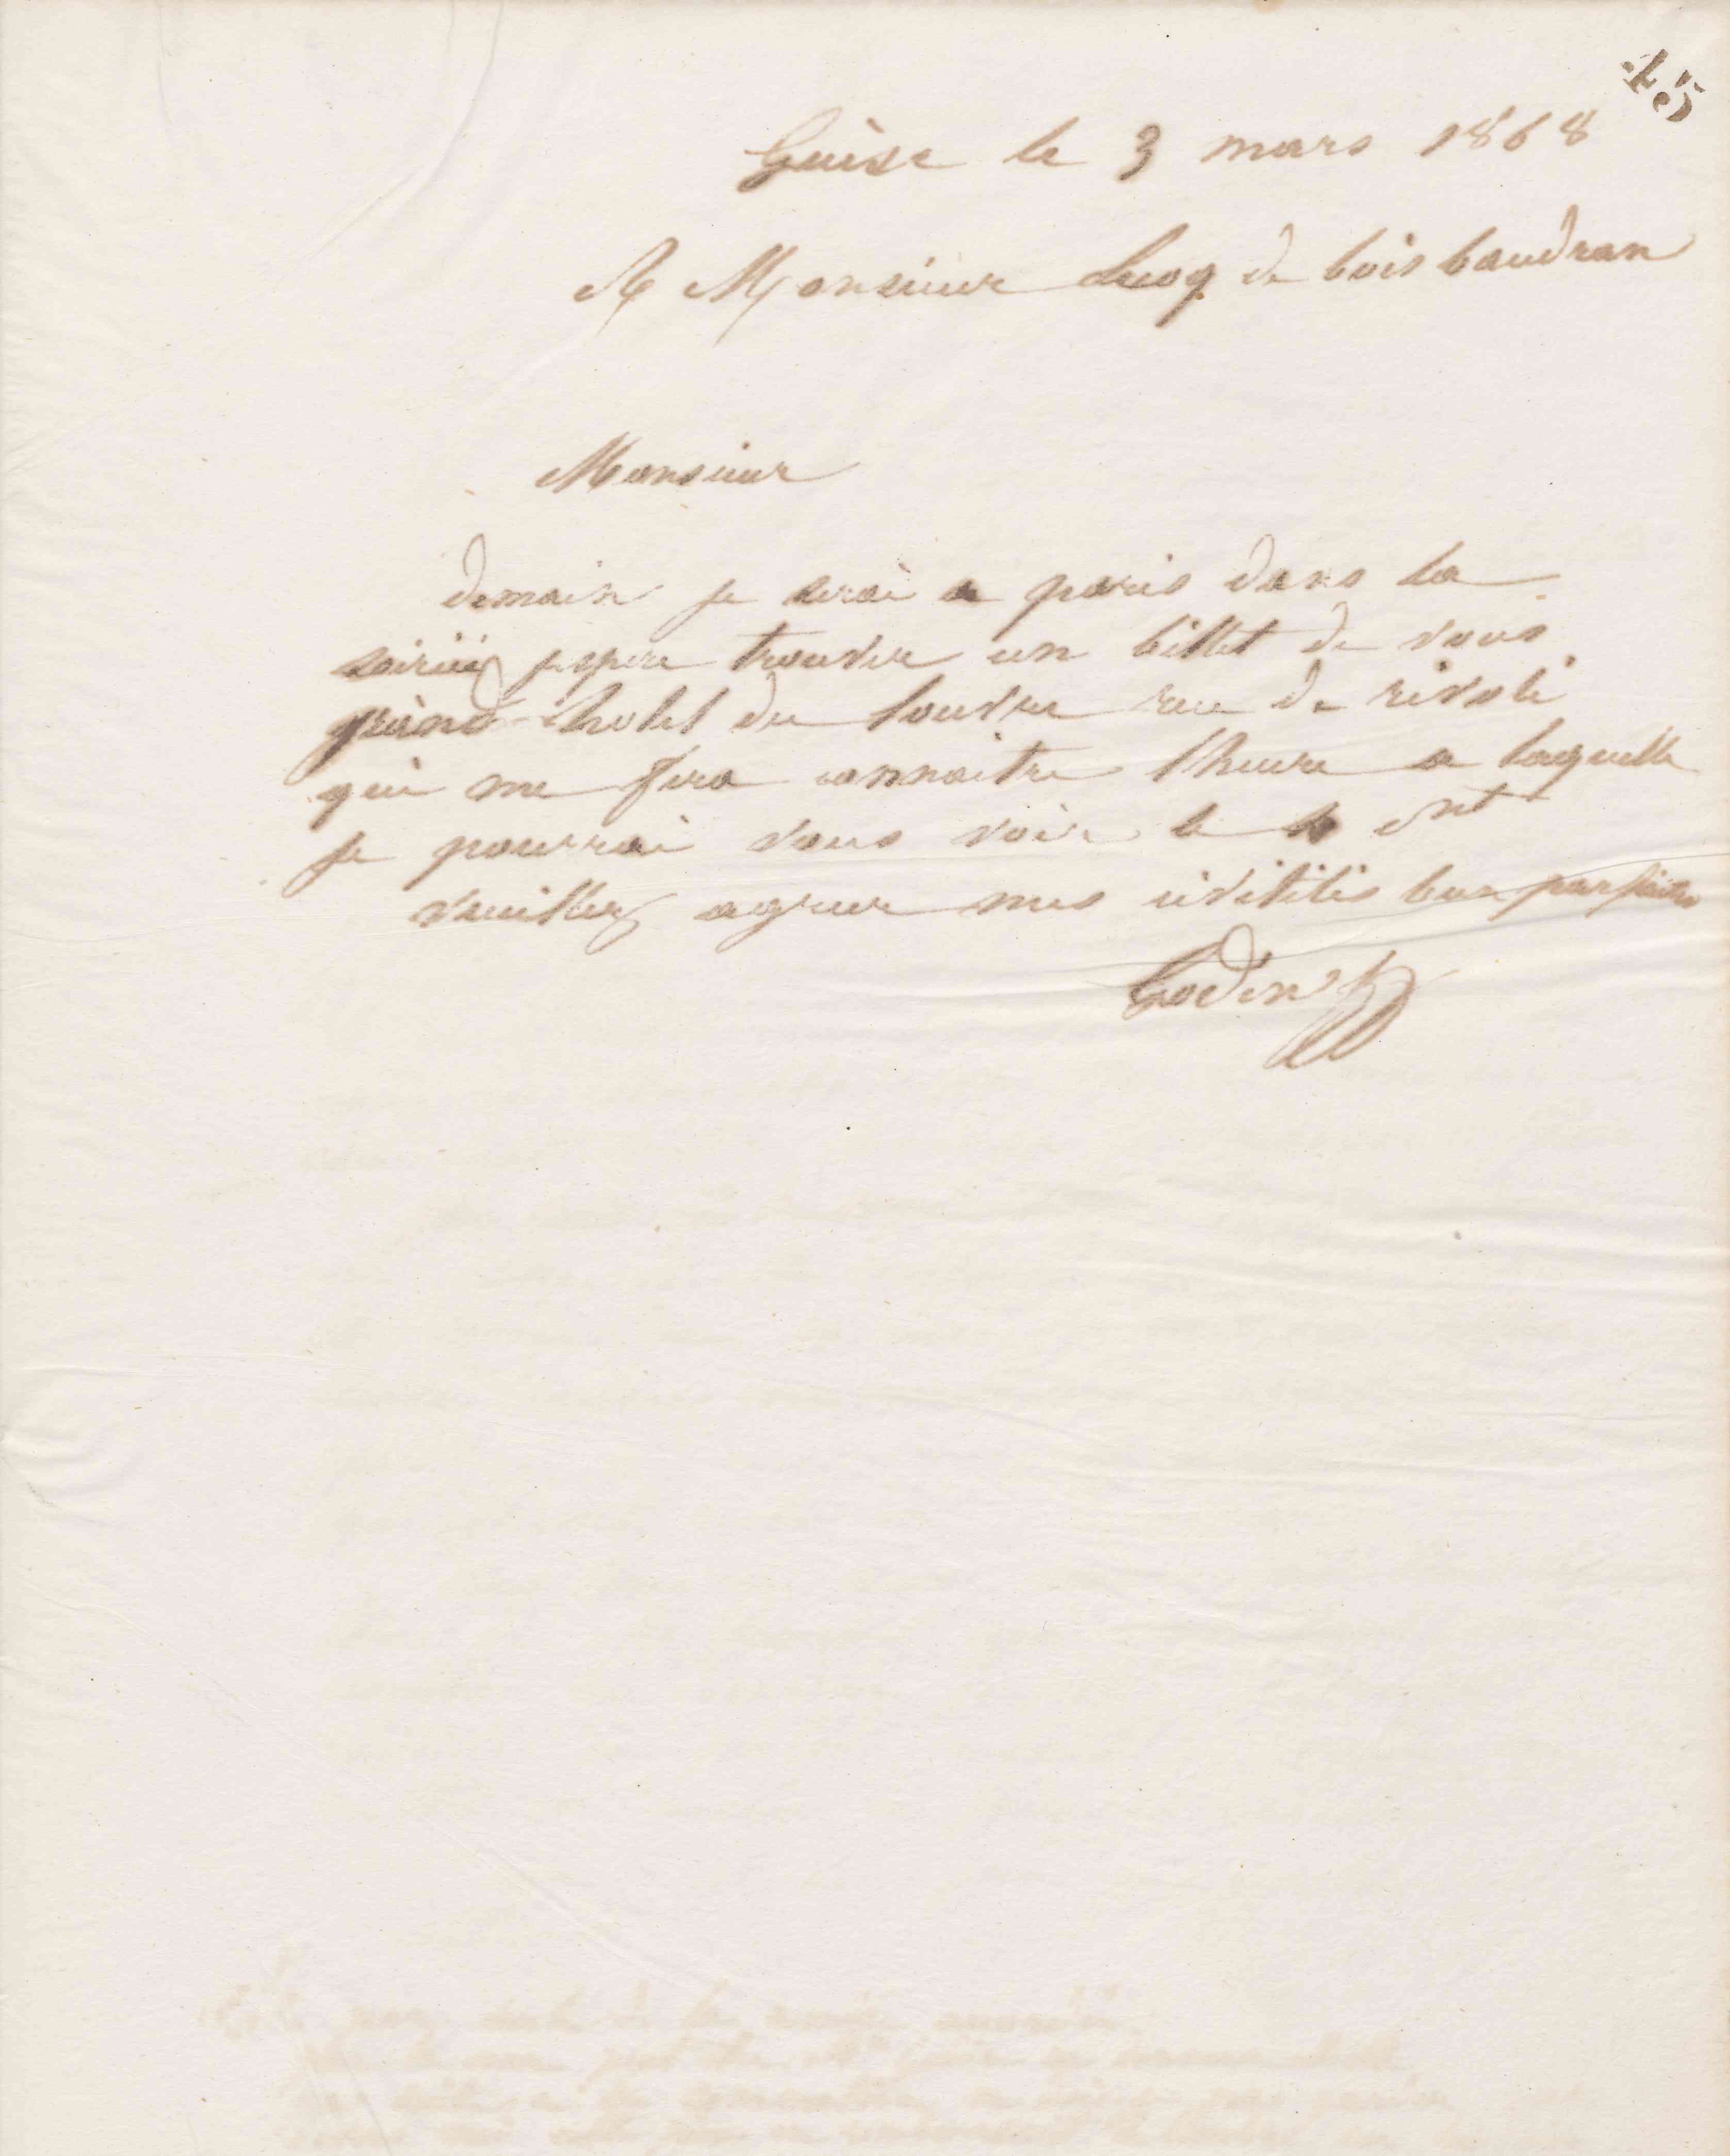 45
Guise le 3 mars 1868
A Monsieur Lecoq de bois baudran
Monsieur
demain je serai a paris dans la
soirée jespere trouver un billet de vous
grand hotel du louvre rue de rivoli
qui me fera connaitre lheure a laquelle
je pourrai vous voir le
veuillez agreer mes civilités parfaites
Godin